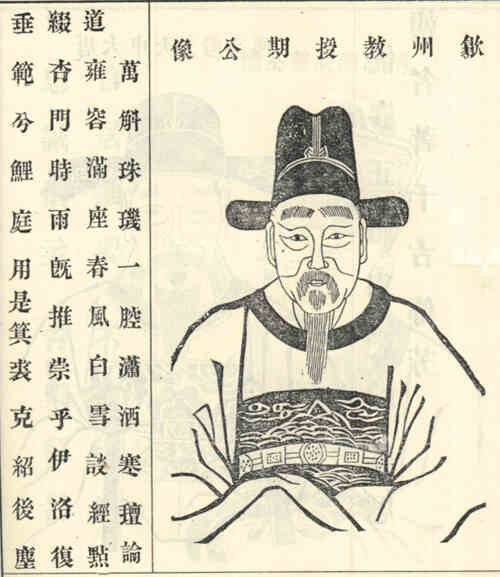 歙州教授期公像
萬斛珠璣一腔瀟洒寒璮論
道雍容滿座春風白雪談經點
綴杏門時雨旣推崇乎伊洛復
垂範兮鯉庭用是箕裘克紹後塵